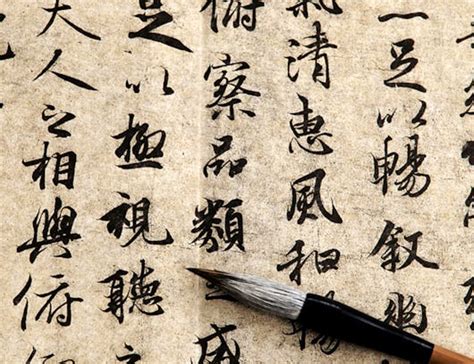 一足以暢叙幽
氣清惠風和暢
俯察品類之盛
足以極視聽
夫人之相與俯